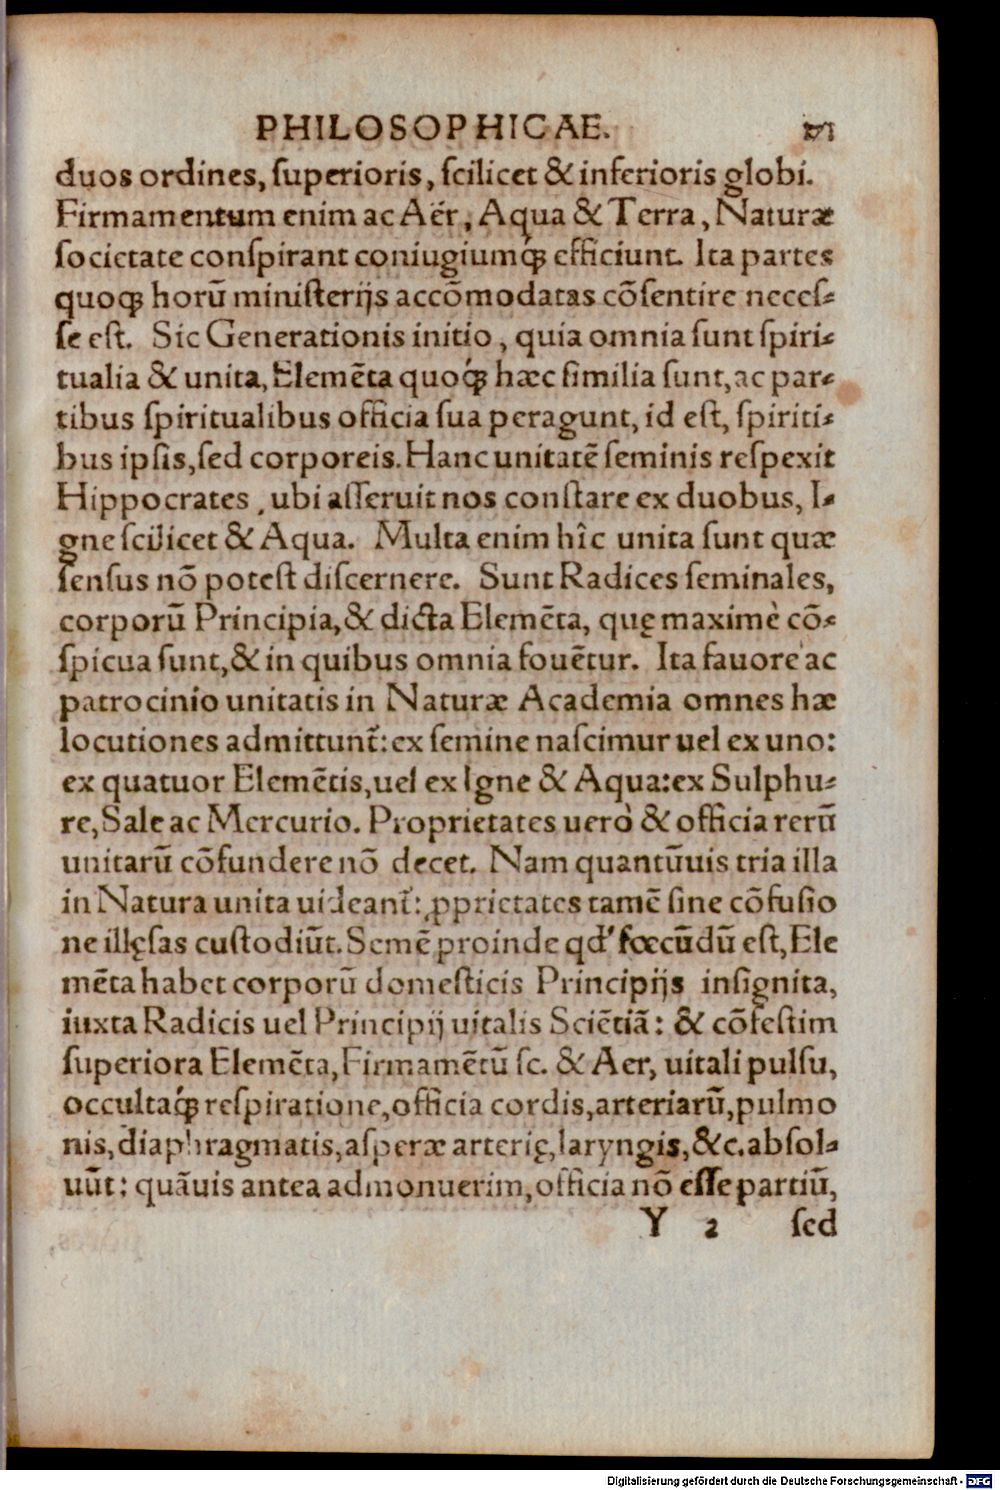 PHILOSOPHICAE.
duos ordines, ſuperioris, ſcilicet & inferioris globi.
Firmamentum enim ac Aër, Aqua & Terra, Naturæ
ſocietate conſpirant coniugiumq́ꝫ efficiunt. Ita partes
quoqꝫ horū miniſterijs accōmodatas cōſentire neceſ-
ſe eſt. Sic Generationis initio, quia omnia ſunt ſpiri-
tualia & unita, Elemēta quoq́ꝫ hæc ſimilia ſunt, ac par-
tibus ſpiritualibus officia ſua peragunt, id eſt, ſpiriti-
bus ipſis, ſed corporeis. Hanc unitatē ſeminis reſpexit
Hippocrates, ubi aſſeruit nos conſtare ex duobus, I-
gne ſcilicet & Aqua. Multa enim hîc unita ſunt quæ
ſenſus nō poteſt diſcernere. Sunt Radices ſeminales,
corporū Principia, & dicta Elemēta, quę maximè cō-
ſpicua ſunt, & in quibus omnia fouētur. Ita fauore ac
patrocinio unitatis in Naturæ Academia omnes hæ
locutiones admittunt᷑: ex ſemine naſcimur uel ex uno:
ex quatuor Elemētis, uel ex Igne & Aqua: ex Sulphu-
re, Sale ac Mercurio. Proprietates uerò & officia rerū
unitarū cōfundere nō decet. Nam quantūuis tria illa
in Natura unita uideant᷑: ꝓprietates tamē ſine cōfuſio
ne illęſas cuſtodiūt. Semē proinde qd' fœcūdū eſt, Ele
mēta habet corporū domeſticis Principijs inſignita,
iuxta Radicis uel Principij uitalis Sciētiā: & cōfeſtim
ſuperiora Elemēta, Firmamētū ſc. & Aer, uitali pulſu,
occultaq́ꝫ reſpiratione, officia cordis, arteriarū, pulmo
nis, diaphragmatis, aſperæ arterię, laryngis, &c. abſol-
uūt: quāuis antea admonuerim, officia nō eſſe partiū,
Y 2 ſed
Digitalisierung gefördert durch die Deutsche Forschungsgemeinschaft - DFG